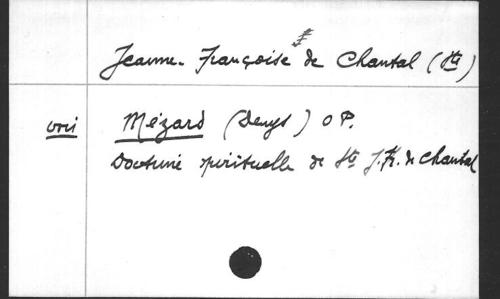 Jeanne-Françoise de Chantal (Ste)
voir Mézard (Denys) O P.
Doctrine spirituelle de Ste J. Fr. de Chantal